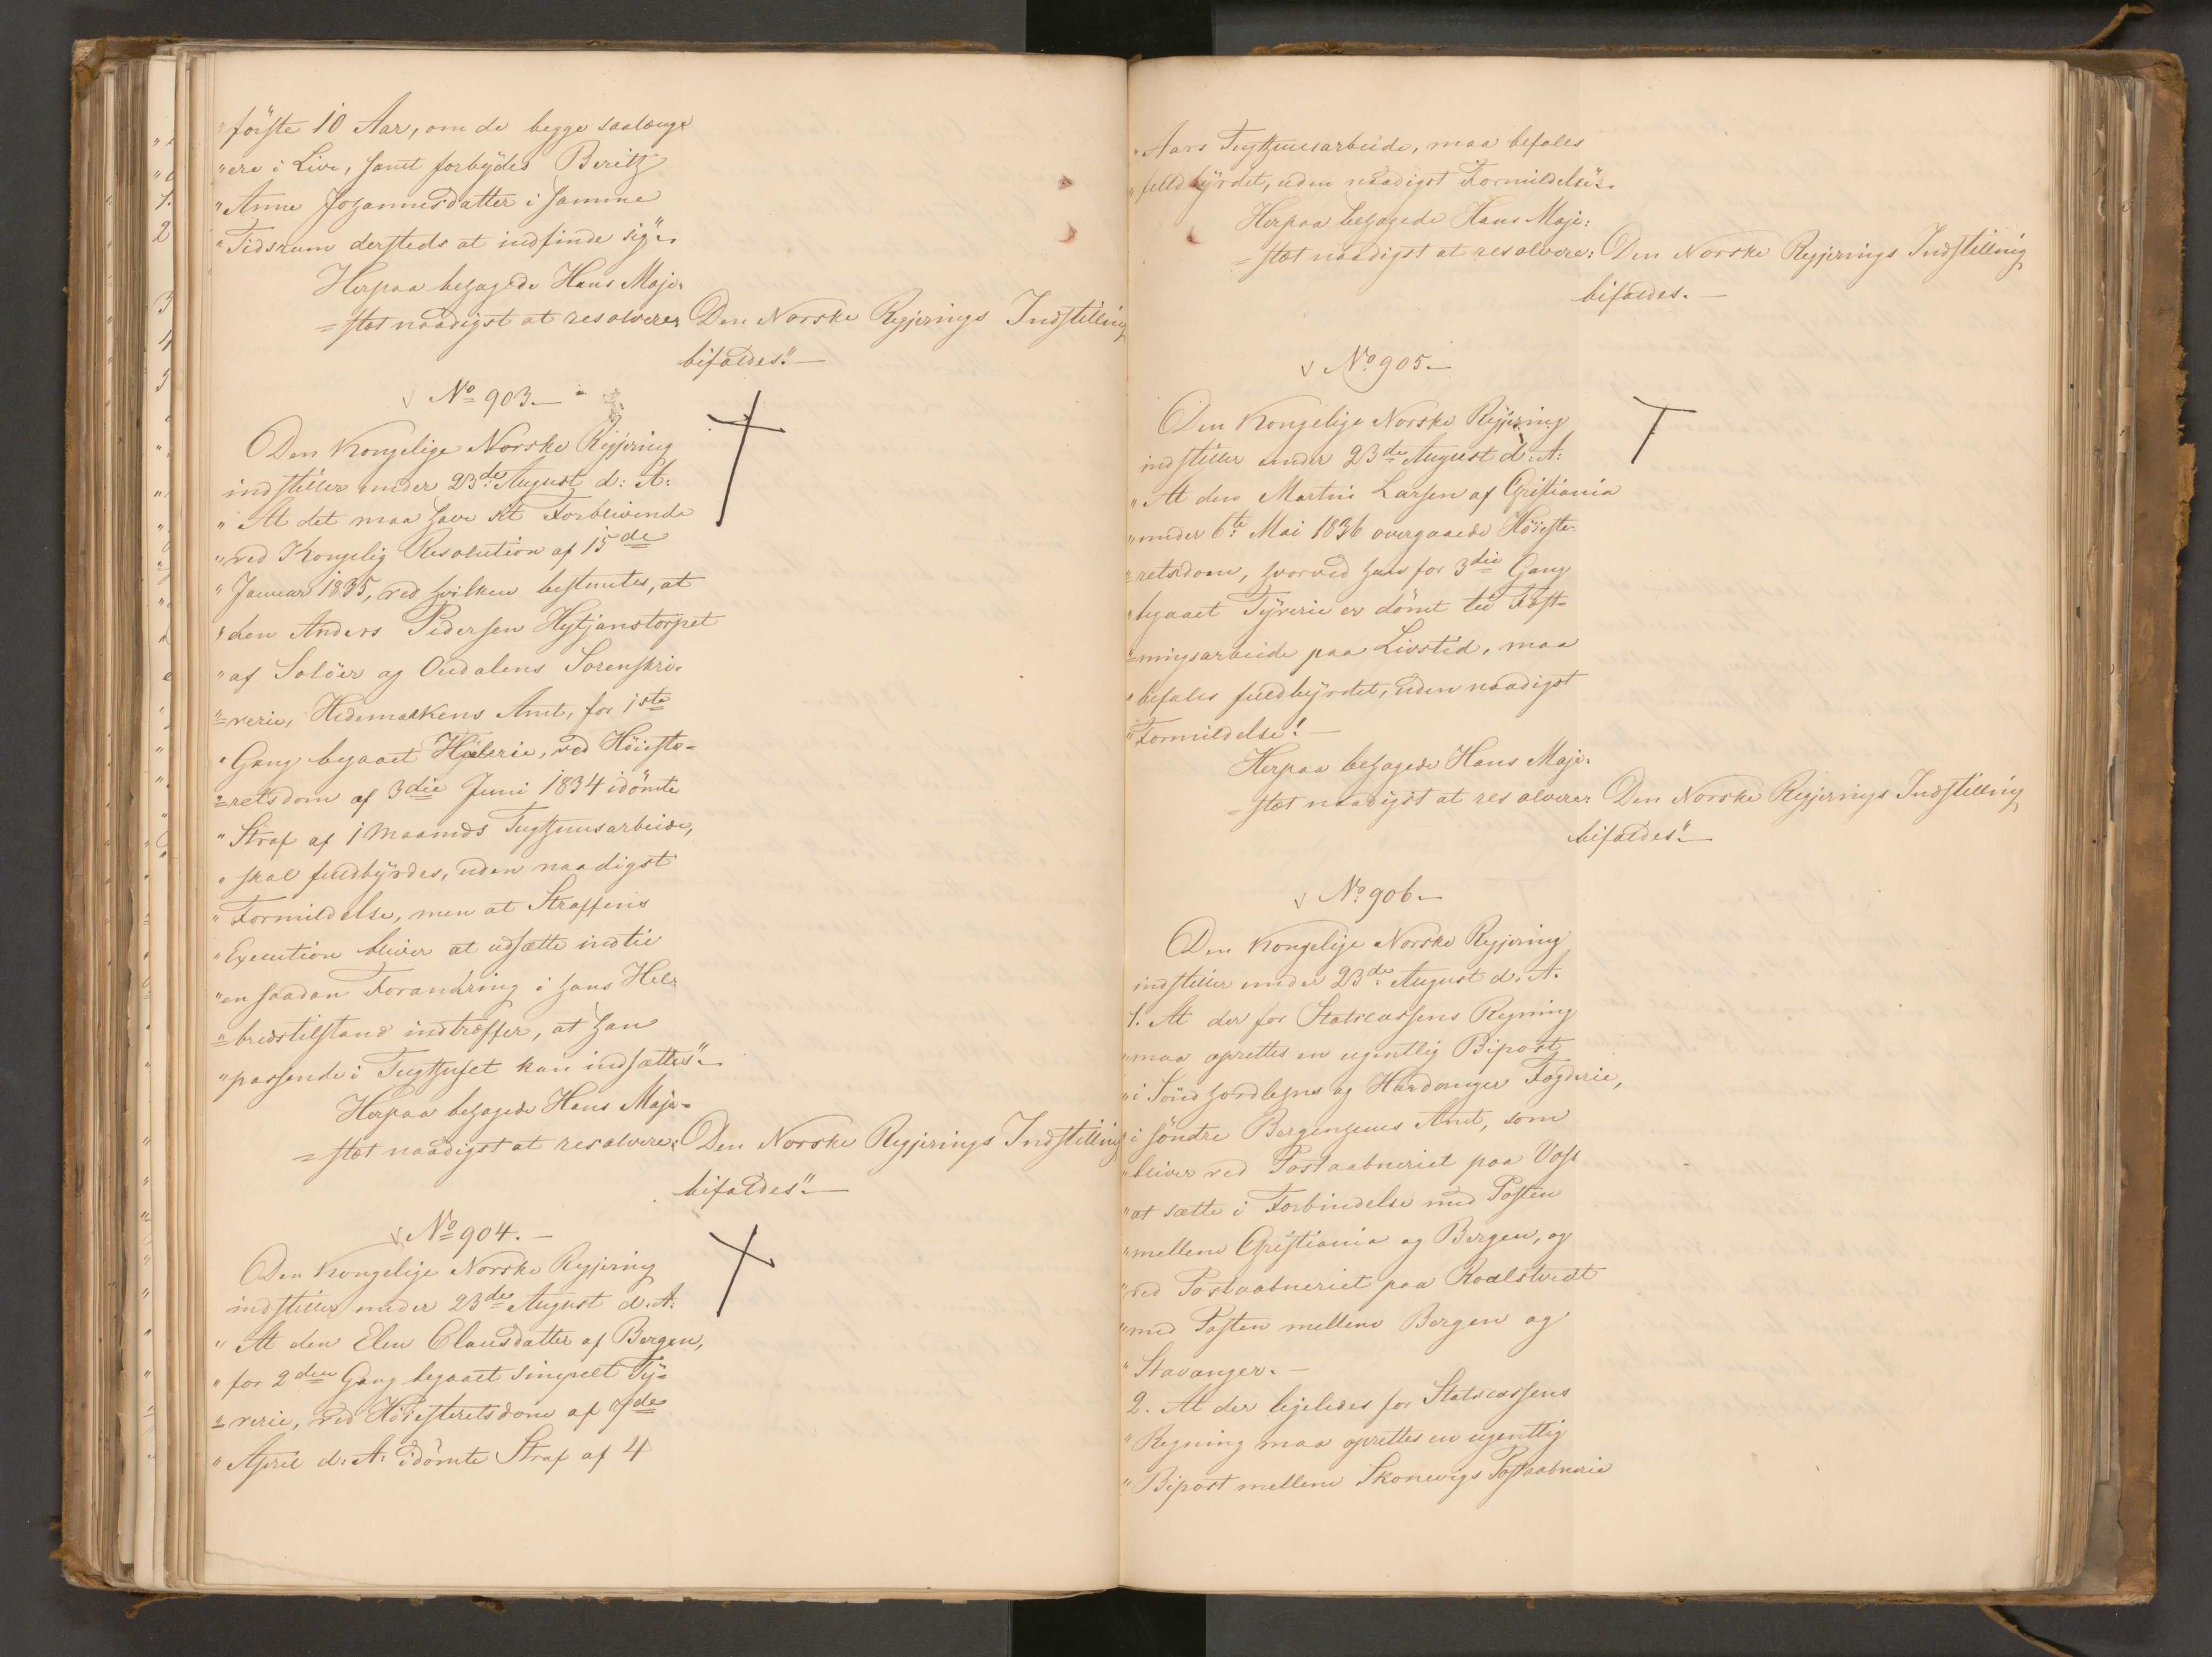 "første 10 Aar, om de begge saalænge
"ere i Live, samt forbydes Beritz
"Anne Johannesdatter i samme
"Tidsrum dersteds at indfinde sig".
Herpaa behagede Hans Maje-
=stæt naadigst at resolvere: Den Norske Regjerings Indstilling
bifaldes."—
No 903.—
Den Kongelige Norske Regjering
indstiller under 23de August d: A:
"At det maa have sit Forblivende
"ved Kongelig Resolution af 15de
"Januar 1835, ved hvilken bestemtes, at
"den Anders Pedersen Hytjanstorpet
"af Soløer og Oudalens Sorenskri-
"=verie, Hedemarkens Amt, for 1ste
"Gang begaaet Hæleri, ved Høieste-
"=retsdom af 3die Juni 1834 idømte
"Straf af 1 Maaneds Tugthuusarbeide,
"skal fuldbyrdes, uden naadigst
"Formildelse, men at Straffens
"Execution bliver at udsætte indtil
"en saadan Forandring i hans Hel-
"=bredstilstand indtræffer, at han
"passende i Tugthuset kan indsættes".—
Herpaa behagede Hans Maje-
=stæt naadigst at resolvere: Den Norske Regjerings Indstilling
bifaldes"—
No 904.—
Den Kongelige Norske Regjering
indstiller under 23de August d. A:
"At den Elen Clausdatter af Bergen,
"for 2den Gang begaaet simpelt Ty-
"=verie, ved Høiesteretsdom af 7de
"April d: A: idømte Straf af 4
"Aars Tugthuusarbeide, maa befales
"fuldbyrdet, uden naadigst Formildelse".
Herpaa behagede Hans Maje:
=stæt naadigst at resolvere: Den Norske Regjerings Indstilling
bifaldes.—
No 905.—
Den Kongelige Norske Regjering
indstiller under 23de August d: A:
"At den Martin Larsen af Christiania
"under 6te Mai 1836 overgaaede Høieste-
"=retsdom, hvorved han for 3die Gang
"begaaet Tyverie er dømt til Fæst-
"=ningsarbeide paa Livstid, maa
"befales fuldbyrdet, uden naadigst
"Formildelse".—
Herpaa behagede Hans Maje-
=stæt naadigst at resolvere: Den Norske Regjerings Indstilling
bifaldes"—
No 906.—
Den Kongelige Norske Regjering
indstiller under 23de August d: A.
1. At der for Statscassens Regning
"maa oprettes en ugentlig Bipost
"i Søndhordlehns og Hardanger Fogderie,
i søndre Bergenhuus Amt, som
"bliver ved Postaabneriet paa Voss
"at sætte i Forbindelse med Posten
"mellem Christiania og Bergen, og
"ved Postaabneriet paa Roalstvedt
"med Posten mellem Bergen og
"Stavanger.—
2. At der ligeledes for Statscassens
"Regning maa oprettes en ugentlig
"Bipost mellem Skonevigs Postaabnerie